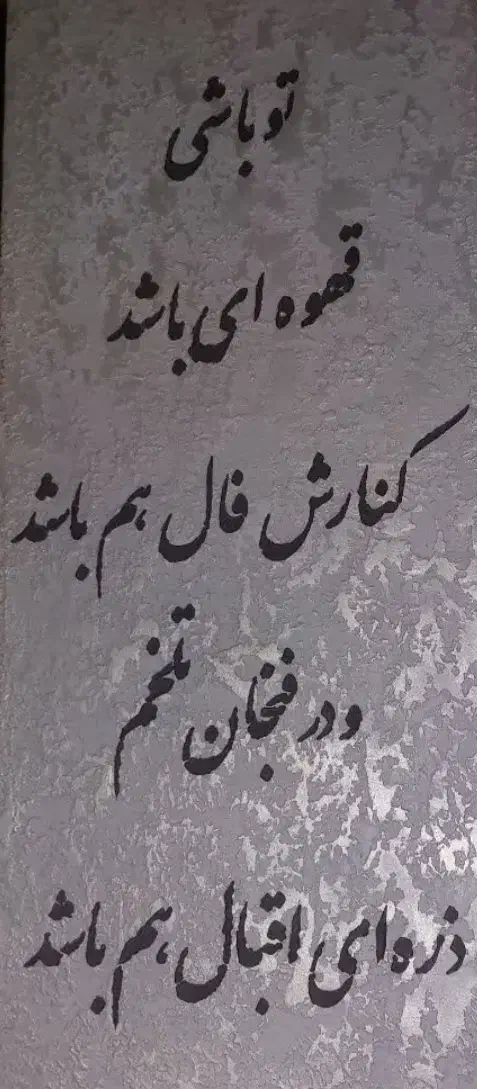 تو باشی
قهوه ای باشد
کنارش فال هم باشد
و در فنجان تلخم
ذره ای اقبال هم باشد